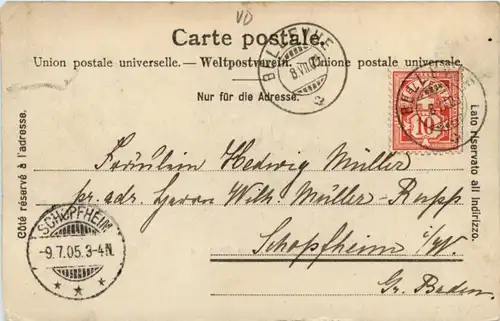 VD
Carte postale.
Union postale universelle. — Weltpostverein. — Unione postale universale.
Nur für die Adresse.
Côté réservé à l'adresse.
Lato riservato all indirizzo.
BELLERIVE
8.VII.05
10
Fräulein Hedwig Müller
pr. adr. Herrn Wilh. Müller-Rupp
Schopfheim i/W.
Gr. Baden.
SCHOPFHEIM
-9.7.05.3-4N.